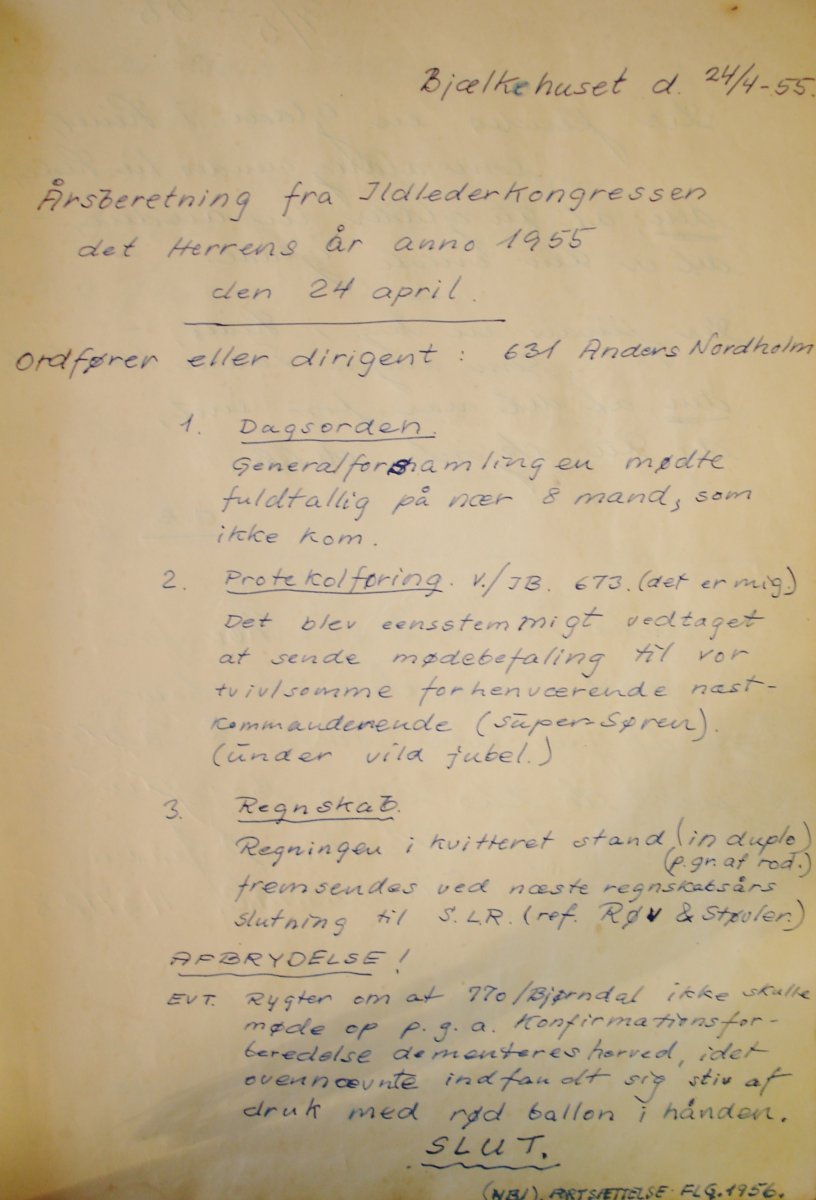 Bjælkehuset d. 24/4-55.
Årsberetning fra Ildlederkongressen
det Herrens år anno 1955
den 24 april.
Ordfører eller dirigent : 631 Anders Nordholm
1. Dagsorden.
Generalforsamlingen mødte
fuldtallig på nær 8 mand, som
ikke kom.
2. Protekolføring. v./JB. 673. (det er mig.)
Det blev eensstemmigt vedtaget
at sende mødebefaling til vor
tvivlsomme forhenværende næst-
kommanderende (Super-Søren).
(under vild jubel.)
3. Regnskab.
Regningen i kvitteret stand (in duplo)
(p.gr. af rod.)
fremsendes ved næste regnskabsårs
slutning til S.L.R. (ref. Røv & Støvler.)
AFBRYDELSE!
EVT. Rygter om at 770/Bjørndal ikke skulle
møde op p.g.a. Konfirmationsfor-
beredelse dementeres herved, idet
ovennævnte indfandt sig stiv af
druk med rød ballon i hånden.
SLUT.
(NB!). FORTSÆTTELSE FLG. 1956.